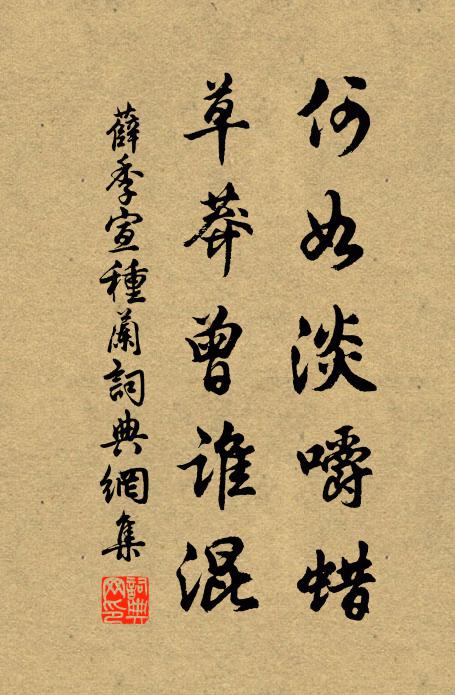 何如淡嚼蜡
草莽曾谁混
薛季宣種蘭詞典網集
詞典網印